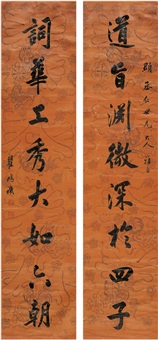 道旨渊微深於四子
詞華工秀大如六朝